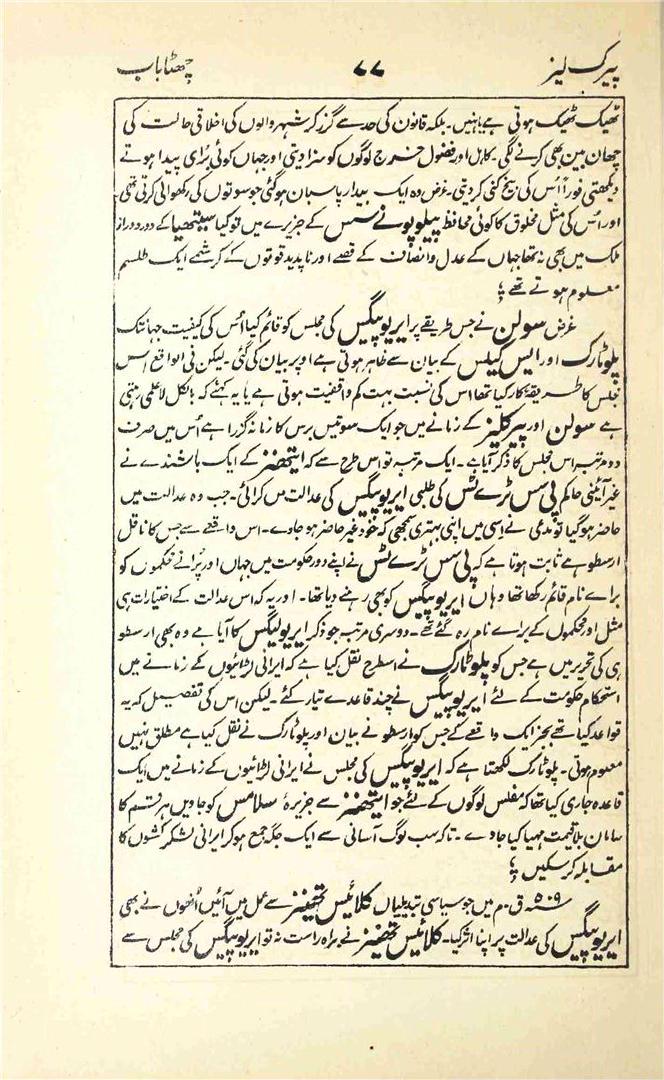 پیرک لیز ۷۷ چھٹا باب
ٹھیک ٹھیک ہوتی ہے یا نہیں۔ بلکہ قانون کی حد سے گزر کر شہر والوں کی اخلاقی حالت کی
چھان بین بھی کرنے لگی۔ کاہل اور فضول خرچ لوگوں کو سزا دیتی اور جہاں کوئی بُرائی پیدا ہوتے
دیکھتی فوراً اُس کی بیخ کنی کردیتی۔ غرض وہ ایک بیدار پاسبان ہوگئی جو سوتوں کی رکھوالی کرتی تھی
اور اُس کی مثل مخلوق کا کوئی محافظ پیلوپونے سس کے جزیرے میں تو کیا سیتھیا کے دور دراز
ملک میں بھی نہ تھا جہاں کے عدل و انصاف کے قصے اور ناپدید قوتوں کے کرشمے ایک طلسم
معلوم ہوتے تھے ؛
غرض سولن نے جس طریقے پر ایریوپیگس کی مجلس کو قائم کیا اُس کی کیفیت جہانتک
پلوٹارک اور ایس کیلس کے بیان سے ظاہر ہوتی ہے اوپر بیان کی گئی۔ لیکن فی الواقع اس
مجلس کا طریقۂ کار کیا تھا اس کی نسبت بہت کم واقفیت ہوتی ہے یا یہ کہئے کہ بالکل لا علمی رہتی
ہے سولن اور پیرکلیز کے زمانے میں جو ایک سو تیس برس کا زمانہ گزرا ہے اُس میں صرف
دو مرتبہ اس مجلس کا ذکر آیا ہے۔ ایک مرتبہ تو اس طرح سے کہ ایتھنز کے ایک باشندے نے
غیر آئینی حاکم پی سس ٹرے ٹس کی طلبی ایریوپیگس کی عدالت میں کرائی۔ جب وہ عدالت میں
حاضر ہوگیا تو مدعی نے اسی میں اپنی بہتری سمجھی کہ خود غیر حاضر ہو جاوے۔ اس واقعے سے جس کا ناقل
ارسطو ہے ثابت ہوتا ہے کہ پی سس ٹرے ٹس نے اپنے دور حکومت میں جہاں اور پُرانے محکموں کو
براے نام قائم رکھا تھا وہاں ایریوپیگس کو بھی رہنے دیا تھا۔ اور یہ کہ اس عدالت کے اختیارات بھی
مثل اور محکموں کے براے نام رہ گئے تھے۔ دوسری مرتبہ جو ذکر ایریوپیگس کا آیا ہے وہ بھی ارسطو
ہی کی تحریر میں ہے جس کو پلوٹارک نے اسطرح نقل کیا ہے کہ ایرانی لڑائیوں کے زمانے میں
استحکام حکومت کے لئے ایریوپیگس نے چند قاعدے تیار کئے۔ لیکن اس کی تفصیل کہ یہ
قواعد کیا تھے بجز ایک واقعے کے جس کو ارسطو نے بیان اور پلوٹارک نے نقل کیا ہے مطلق نہیں
معلوم ہوتی۔ پلوٹارک لکھتا ہے کہ ایریوپیگس کی مجلس نے ایرانی لڑائیوں کے زمانے میں ایک
قاعدہ جاری کیا تھا کہ مفلس لوگوں کے لئے جو ایتھنز سے جزیرۂ سلامس کو جاویں ہر قسم کا
سامان بلا قیمت مہیا کیا جاوے۔ تاکہ سب لوگ آسانی سے ایک جگہ جمع ہوکر ایرانی لشکر کشوں کا
مقابلہ کرسکیں ؛
سنہ ۵۰۹ ق۔م میں جو سیاسی تبدیلیاں کلائیس تھینز سے عمل میں آئیں اُنھوں نے بھی
ایریوپیگس کی عدالت پر اپنا اثر کیا۔ کلائیس تھینز نے براہ راست نہ تو ایریوپیگس کی مجلس سے